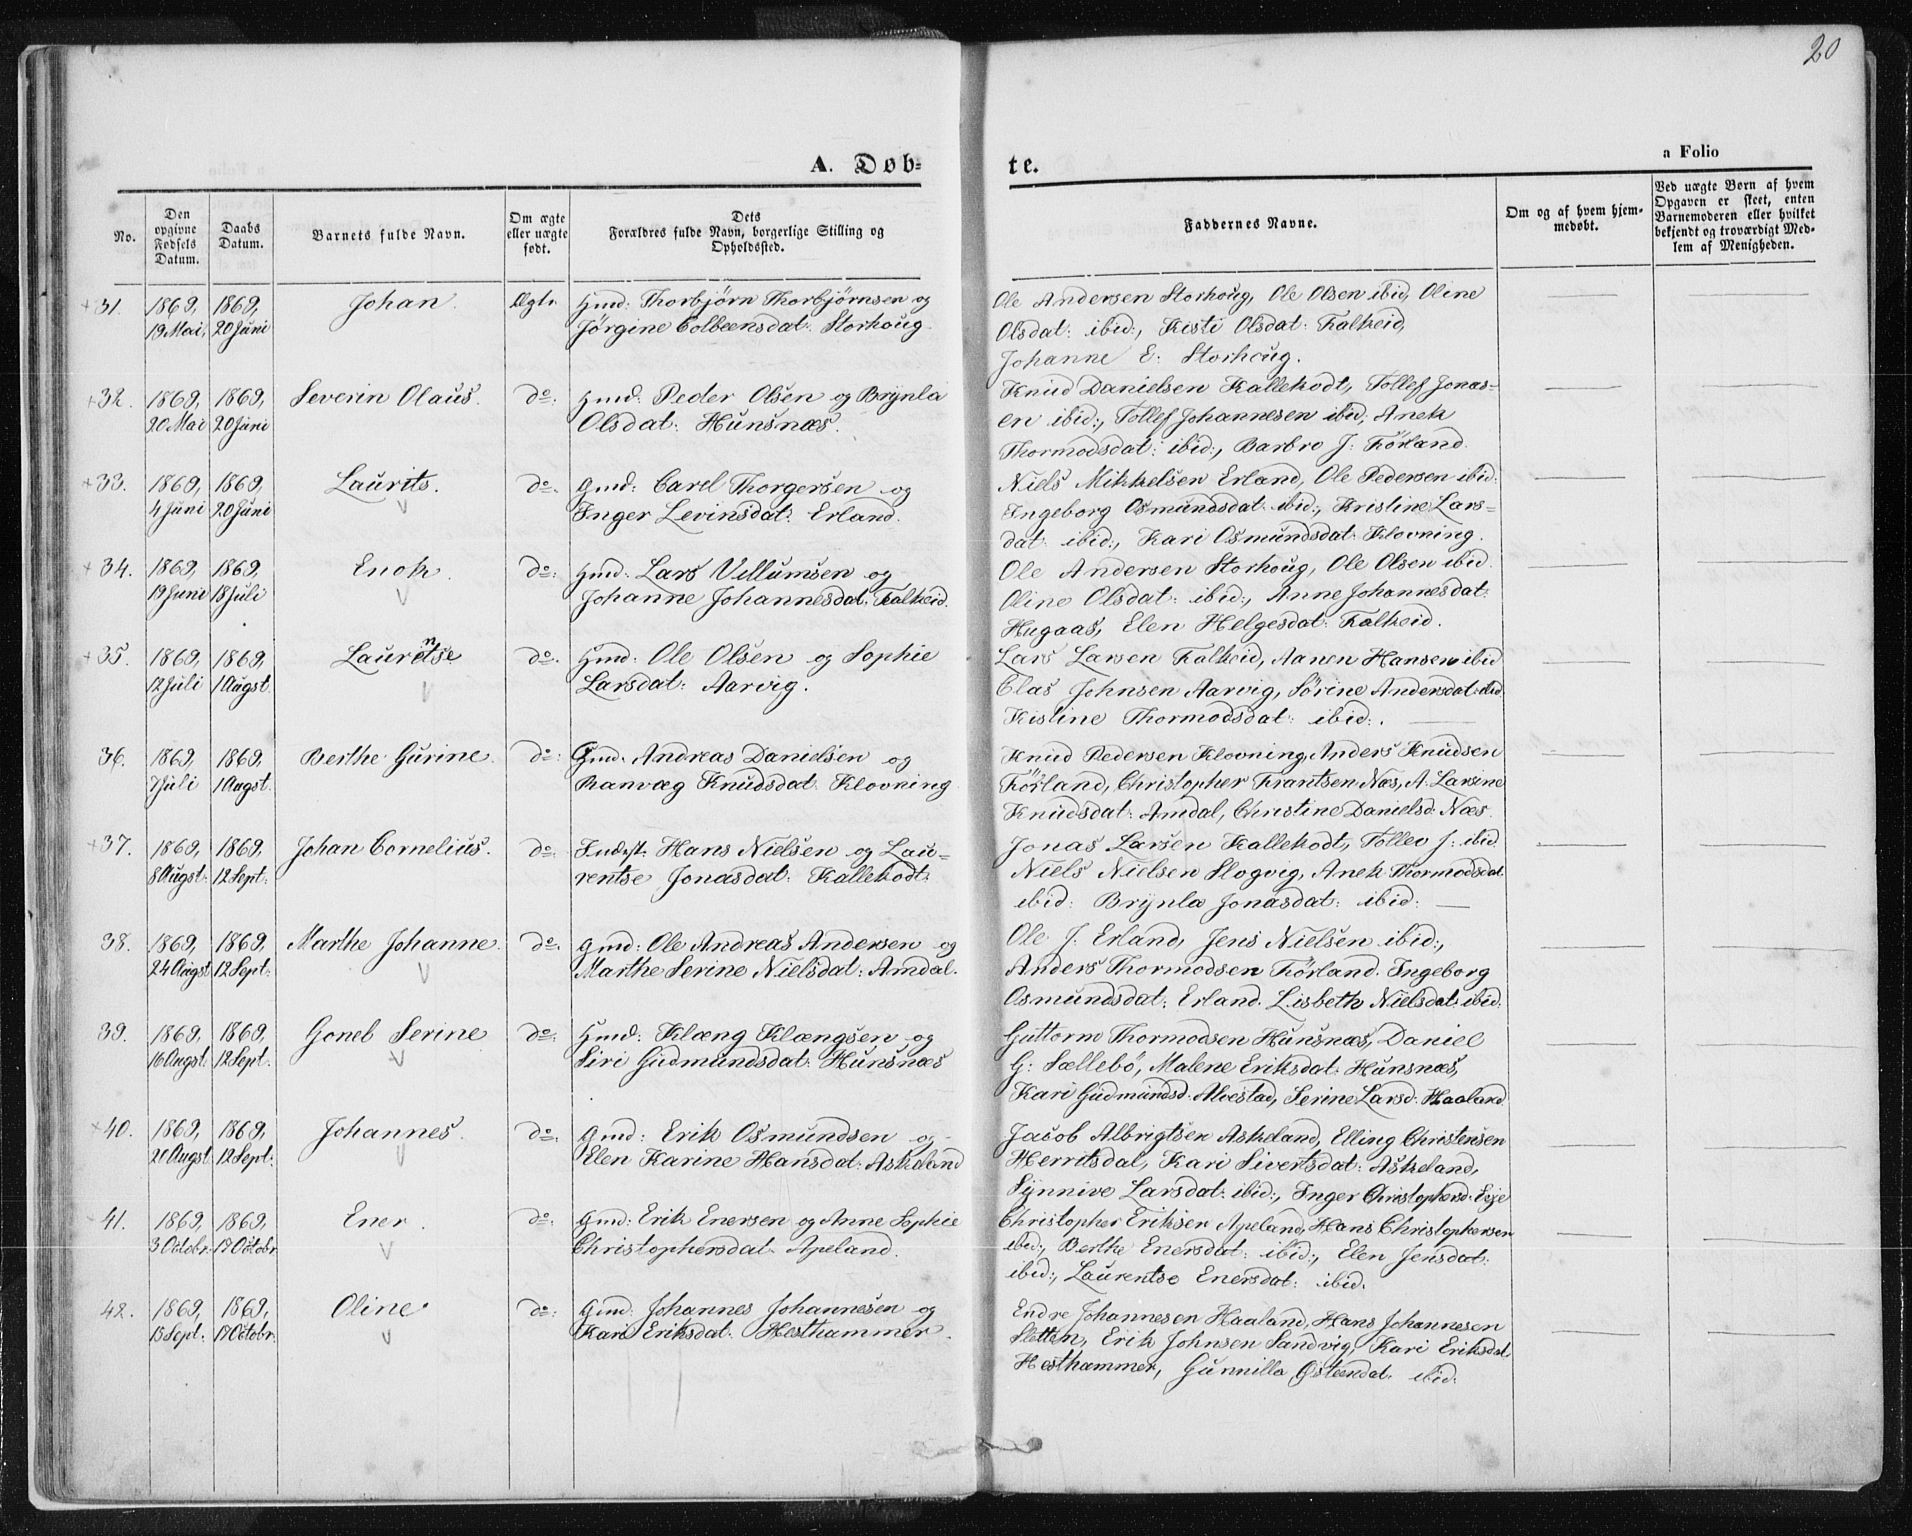 20
A. Døb-
te.
a Folio
No.
Den opgivne Fødsels Datum.
Daabs Datum.
Barnets fulde Navn.
Om ægte eller uægte født.
Dets Forældres fulde Navn, borgerlige Stilling og Opholdssted.
Faddernes Navne.
Om og af hvem hjemmedøbt.
Ved uægte Børn af hvem Opgaven er skeet, enten Barnemoderen eller hvilket bekjendt og troværdigt Medlem af Menigheden.
+31. 1869, 1869, Johan. Ægte. Gmd: Thorbjørn Thorbjørnsen og
19 Mai, 20 Juni Jørgine Colbeensdat: Storhoug
Ole Andersen Storhoug, Ole Olsen ibid, Oline
Olsdat: ibid:, Kisti Olsdat: Falkeid,
Johanne E: Storhoug.
+32. 1869, 1869, Severin Olaus. do: Gmd: Peder Olsen og Brynla
20 Mai 20 Juni Olsdat: Hunsnæs.
Knud Danielsen Kallekodt, Tollef Jonas-
en ibid:, Tollef Johannesen ibid, Anek
Thormodsdat: ibid:, Barbro J: Førland.
+33. 1869, 1869, Laurits. do. Gmd: Carel Thorgersen og
4 Juni 20 Juni Inger Levinsdat: Erland.
Niels Mikkelsen Erland, Ole Pedersen ibid:
Ingeborg Osmundsdat: ibid:, Kristine Lars-
dat: ibid:, Kari Osmundsdat: Klovning.
+34. 1869, 1869, Enok. do: Gmd: Lars Villumsen og
19 Juni 18 Juli Johanne Johannesdat: Falkeid.
Ole Andersen Storhoug, Ole Olsen ibid.
Oline Olsdat: ibid:, Anne Johannesdat:
Hugaas, Elen Helgesdat: Falkeid.
+35. 1869, 1869, Laurentse do. Gmd: Ole Olsen og Sophie
12 Juli 1 Augst. Larsdat: Aarvig.
Lars Larsen Falkeid, Aanen Hansen ibid
Clas Johnsen Aarvig, Sørine Andersdat: ibid
Kistine Thormodsdat: ibid:.
36. 1869, 1869, Berthe Gurine. do: Gmd. Andreas Danielsen og
7 Juli 1 Augst. Ranvæg Knudsdat: Klovning
Knud Pedersen Klovning, Anders Knudsen
Førland, Christopher Frantsen Næs, A. Larsine
Knudsdat: Amdal, Christine Danielsd: Næs.
+37. 1869, 1869, Johan Cornelius. do: Inderst: Hans Nielsen og Lau-
8 Augst: 12 Sept: rentse Jonasdat: Kallekodt:
Jonas Larsen Kallekodt, Tollev J: ibid
Niels Nielsen Slogvig, Anek Thormodsdat
ibid: Brynla Jonasdat: ibid:
38. 1869, 1869, Marthe Johanne. do. Gmd: Ole Andreas Andersen og
24 Augst 12 Sept: Marthe Serine Nielsdat: Amdal.
Ole J. Erland, Jens Nielsen ibid:,
Anders Thormodsen Førland. Ingeborg
Osmundsdat: Erland. Lisbeth Nielsdat: ibid.
39. 1869, 1869, Gonel Serine do: Gmd: Klæng Klængsen og
16 Augst. 12 Sept. Siri Gudmundsdat: Hunsnæs
Guttorm Thormodsen Hunsnæs, Daniel
G: Sællebø, Malene Eriksdat: Hunsnæs,
Kari Gudmundsd: Alvestad, Serine Larsd: Haaland
+40. 1869, 1869, Johannes. do: Gmd: Erik Osmundsen og
20 Augst 12 Sept: Elen Karine Hansdat: Askeland
Jacob Albrigtsen Askeland, Elling Christensen
Herritsdal, Kari Sivertsdat: Askeland,
Synnive Larsdat: ibid:, Inger Christophersd: Eeje
41. 1869, 1869, Ener. do: Gmd: Erik Enersen og Anne Sophie
3 Octobr. 17 Octobr. Christophersdat: Apeland.
Christopher Eriksen Apeland, Hans Christophersen
ibid:, Berthe Enersdat: ibid:, Elen Jensdat:
ibid:, Laurentse Enersdat: ibid.
42. 1869, 1869, Oline. do: Gmd: Johannes Johannesen og
15 Sept: 17 Octobr. Kari Eriksdat: Hesthammer.
Endre Johannesen Haaland, Hans Johannesen
Sletten, Erik Johnsen Sandvig, Kari Eriksdat
Hesthammer, Gunnilla Østeensdat. ibid: